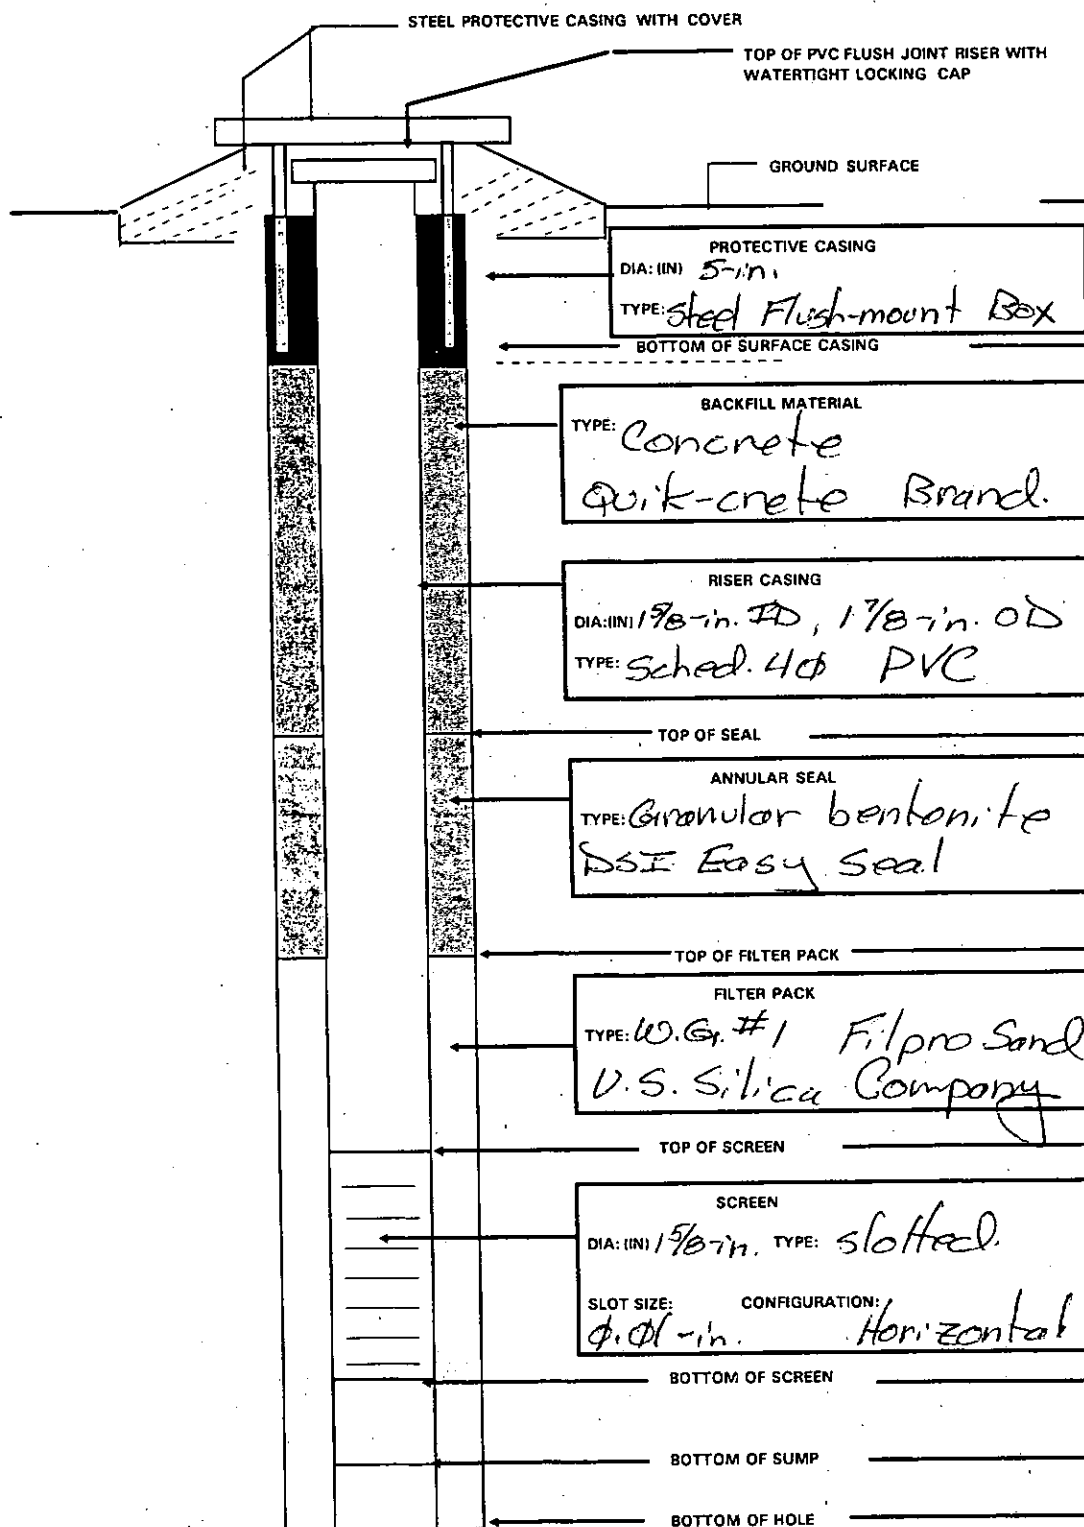 STEEL PROTECTIVE CASING WITH COVER
TOP OF PVC FLUSH JOINT RISER WITH
WATERTIGHT LOCKING CAP
GROUND SURFACE
PROTECTIVE CASING
DIA: (IN) 5-in.
TYPE: Steel Flush-mount Box
BOTTOM OF SURFACE CASING
BACKFILL MATERIAL
TYPE: Concrete
Quik-crete Brand.
RISER CASING
DIA:(IN) 1 5/8-in. ID, 1 7/8-in. OD
TYPE: Sched. 4Ø PVC
TOP OF SEAL
ANNULAR SEAL
TYPE: Granular bentonite
DSI Easy Seal
TOP OF FILTER PACK
FILTER PACK
TYPE: W.G. #1 Filpro Sand
U.S. Silica Company
TOP OF SCREEN
SCREEN
DIA: (IN) 1 5/8-in. TYPE: slotted.
SLOT SIZE: CONFIGURATION:
Ø.Ø1-in. Horizontal
BOTTOM OF SCREEN
BOTTOM OF SUMP
BOTTOM OF HOLE